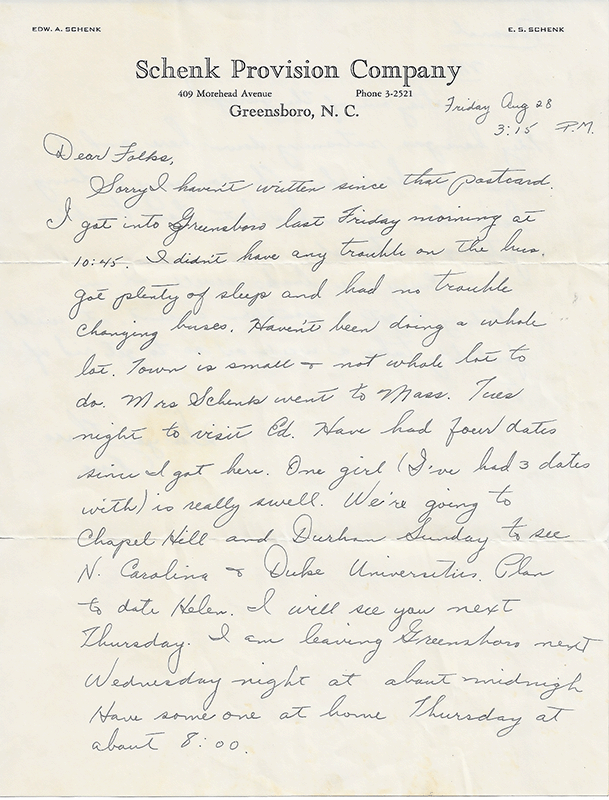 EDW. A. SCHENK E. S. SCHENK
Schenk Provision Company
409 Morehead Avenue Phone 3-2521
Greensboro, N. C.
Friday Aug 28
3:15 P.M.
Dear Folks,
Sorry I haven't written since that postcard.
I got into Greensboro last Friday morning at
10:45. I didn't have any trouble on the bus.
got plenty of sleep and had no trouble
changing buses. Haven't been doing a whole
lot. Town is small & not whole lot to
do. Mrs Schenk went to Mass. Tues
night to visit Ed. Have had four dates
since I got here. One girl (I've had 3 dates
with) is really swell. We're going to
Chapel Hill and Durham Sunday to see
N. Carolina & Duke Universities. Plan
to date Helen. I will see you next
Thursday. I am leaving Greensboro next
Wednesday night at about midnigh
Have some one at home Thursday at
about 8:00.